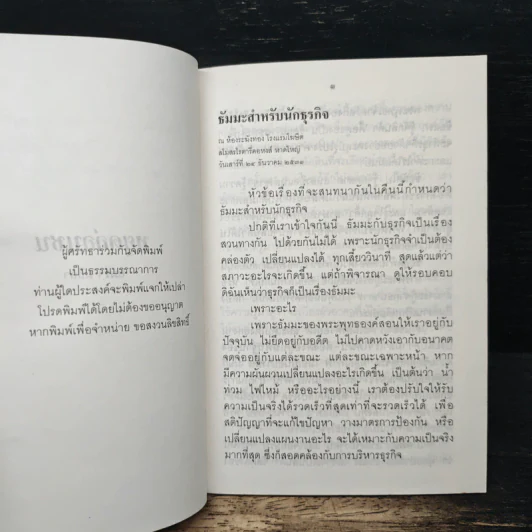 ผู้ศรัทธาร่วมกันจัดพิมพ์
เป็นธรรมบรรณาการ
ท่านผู้ใดประสงค์จะพิมพ์แจกให้เปล่า
โปรดพิมพ์ได้โดยไม่ต้องขออนุญาต
หากพิมพ์เพื่อจำหน่าย ขอสงวนลิขสิทธิ์
ธัมมะสำหรับนักธุรกิจ
ณ ห้องระฆังทอง โรงแรมโฆษิต
สโมสรโรตารี่คอหงส์ หาดใหญ่
วันเสาร์ที่ ๒๔ ธันวาคม ๒๕๓๑
หัวข้อเรื่องที่จะสนทนากันในคืนนี้กำหนดว่า
ธัมมะสำหรับนักธุรกิจ
ปกติที่เราเข้าใจกันนี้ ธัมมะกับธุรกิจเป็นเรื่อง
สวนทางกัน ไปด้วยกันไม่ได้ เพราะนักธุรกิจจำเป็นต้อง
คล่องตัว เปลี่ยนแปลงได้ ทุกเสี้ยววินาที สุดแล้วแต่ว่า
สภาวะอะไรจะเกิดขึ้น แต่ถ้าพิจารณา ดูให้รอบคอบ
ดิฉันเห็นว่าธุรกิจก็เป็นเรื่องธัมมะ
เพราะอะไร
เพราะธัมมะของพระพุทธองค์สอนให้เราอยู่กับ
ปัจจุบัน ไม่ยึดอยู่กับอดีต ไม่ไปคาดหวังเอากับอนาคต
จดจ่ออยู่กับแต่ละขณะ แต่ละขณะเฉพาะหน้า หาก
มีความผันผวนเปลี่ยนแปลงอะไรเกิดขึ้น เป็นต้นว่า น้ำ
ท่วม ไฟไหม้ หรืออะไรอย่างนี้ เราต้องปรับใจให้รับ
ความเป็นจริงได้รวดเร็วที่สุดเท่าที่จะรวดเร็วได้ เพื่อ
สติปัญญาที่จะแก้ไขปัญหา วางมาตรการป้องกัน หรือ
เปลี่ยนแปลงแผนงานอะไร จะได้เหมาะกับความเป็นจริง
มากที่สุด ซึ่งก็สอดคล้องกับการบริหารธุรกิจ